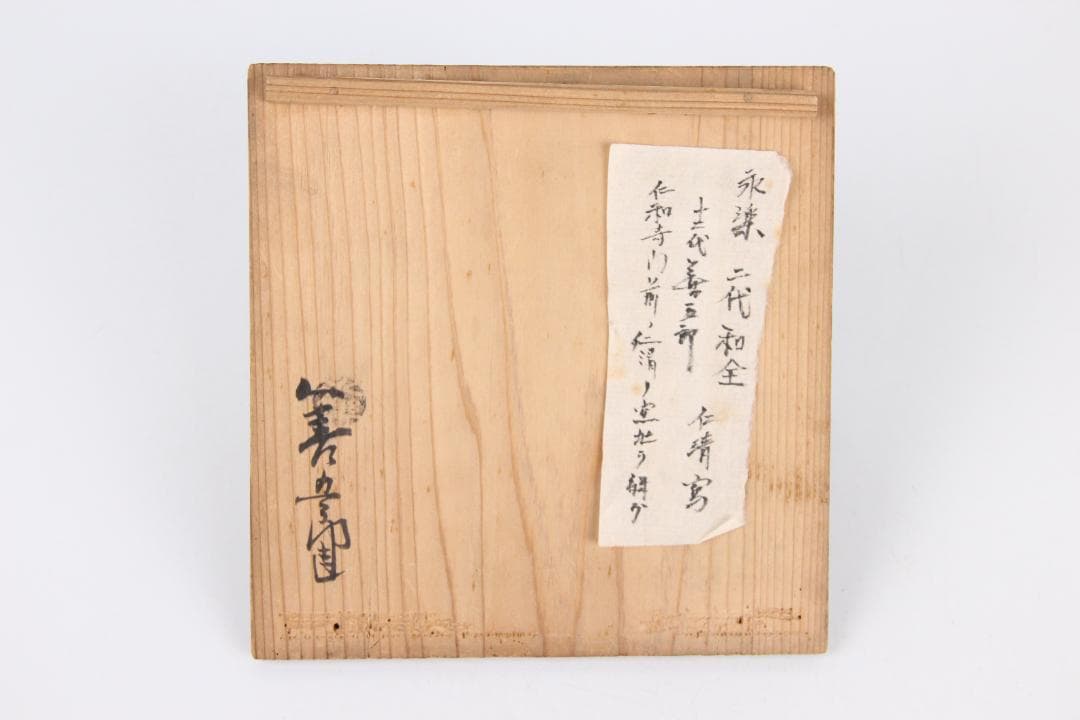 永楽 二代和全
十二代善五郎 仁清写
仁和寺门前ノ仁清ノ窯址ヲ
善五郎造